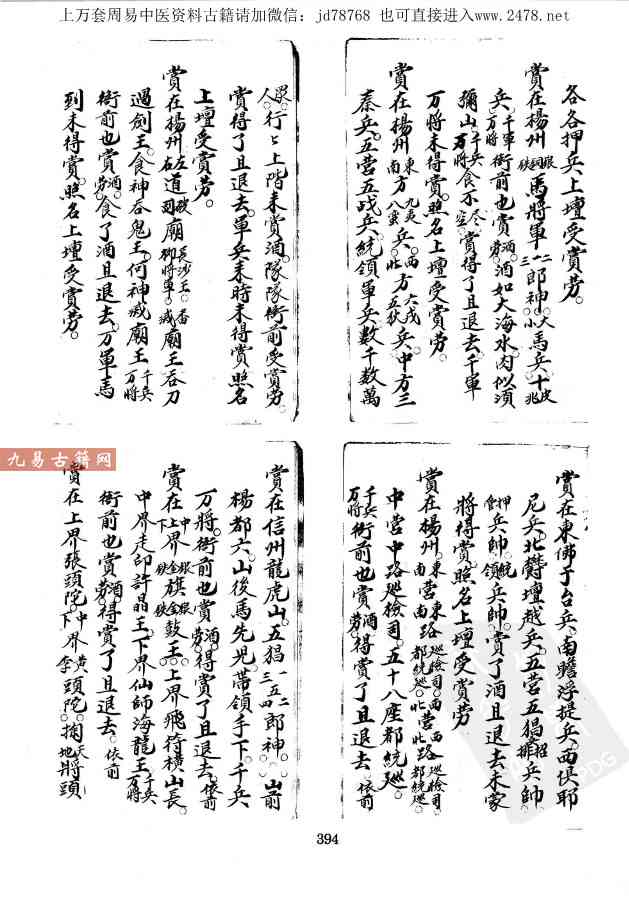 上万套周易中医资料古籍请加微信：jd78768 也可直接进入www.2478.net
各各押兵上壇受賞勞。
賞在楊州 馬將軍 郎神。馬兵十
兵。千軍万將衙前也賞酒勞。酒如大海水肉似須
彌山。千兵万將食不尽。賞得了且退去。千軍
万將未得賞。照名上壇受賞勞。
賞在楊州東南方九夷八蛮兵。西北方六戎五狄兵。中方三
秦兵。五营五战兵。統領軍兵数千数萬
眾人。行行上階来賞酒。隊隊衙前受賞勞。
賞得了且退去。軍兵来時未得賞照名
上壇受賞勞。
賞在楊州左右道 廟 廟王吞刀
過劍王。食神吞鬼王。何神 廟王千兵万將
衙前也賞酒勞。食了酒且退去。万軍馬
到未得賞。照名上壇受賞勞。
賞在東佛于台兵。南贍浮提兵。西俱耶
尼兵。北欝壇越兵。五营五猖招 兵帥
押 兵帥。統領兵帥。賞了酒且退去未蒙
將得賞。照名上壇受賞勞
賞在楊州。東营東路巡檢司。南 南 都統巡。西营西路巡檢司。北 北 都統巡。
中营中路巡檢司。五十八座都統巡。
千兵万將衙前也賞酒勞。得賞了且退去。依前
賞在信州龍虎山。五猖一五二三四郎神。山前
楊都六。山後馬先兇。帶領手下。千兵
万將。衙前也賞酒勞。得賞了且退去。依前
賞在中上下界金銀 旗金銀 鼓王。上界飛符横山長。
中界走印許晶王。下界仙師海龍王千兵万將
衙前也賞酒勞。得賞了且退去。依前
賞在上界張頭陀。中下界黄李頭陀。掏天地將頭
九易古籍网
394
PDG